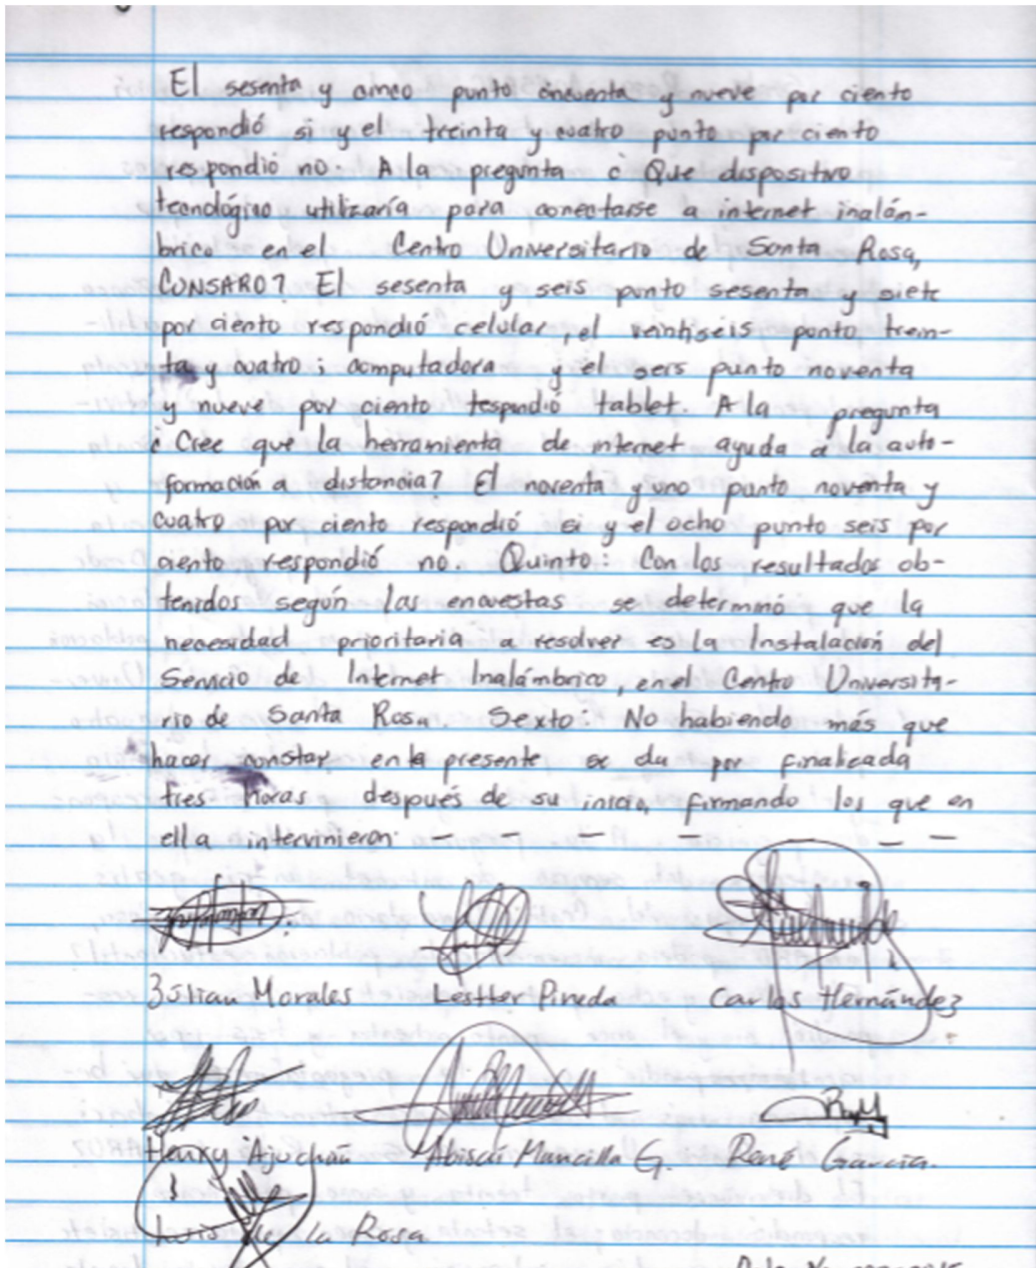 El sesenta y cinco punto cincuenta y nueve por ciento
respondió si y el treinta y cuatro punto por ciento
respondió no. A la pregunta ¿ Que dispositivo
tecnológico utilizaría para conectarse a internet inalám-
brico en el Centro Universitario de Santa Rosa,
CUNSARO? El sesenta y seis punto sesenta y siete
por ciento respondió celular, el veintiseis punto trein-
ta y cuatro ; computadora y el seis punto noventa
y nueve por ciento respondió tablet. A la pregunta
¿ Cree que la herramienta de internet ayuda a la auto-
formación a distancia? El noventa y uno punto noventa y
cuatro por ciento respondió si y el ocho punto seis por
ciento respondió no. Quinto: Con los resultados ob-
tenidos según las encuestas se determinó que la
necesidad prioritaria a resolver es la Instalación del
Servicio de Internet Inalámbrico, en el Centro Universita-
rio de Santa Rosa. Sexto: No habiendo más que
hacer constar en la presente se da por finalizada
tres horas después de su inicio, firmando los que en
ella intervinieron. — — — — — —
Júlian Morales Lestter Pineda Carlos Hernández
Henry Ajuchán Abisaí Mancilla G. René García.
de la Rosa